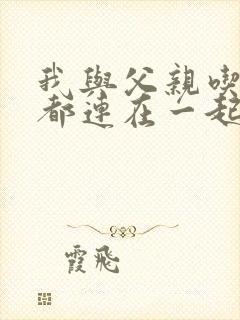 我與父親喫
都連在一起
霞飛